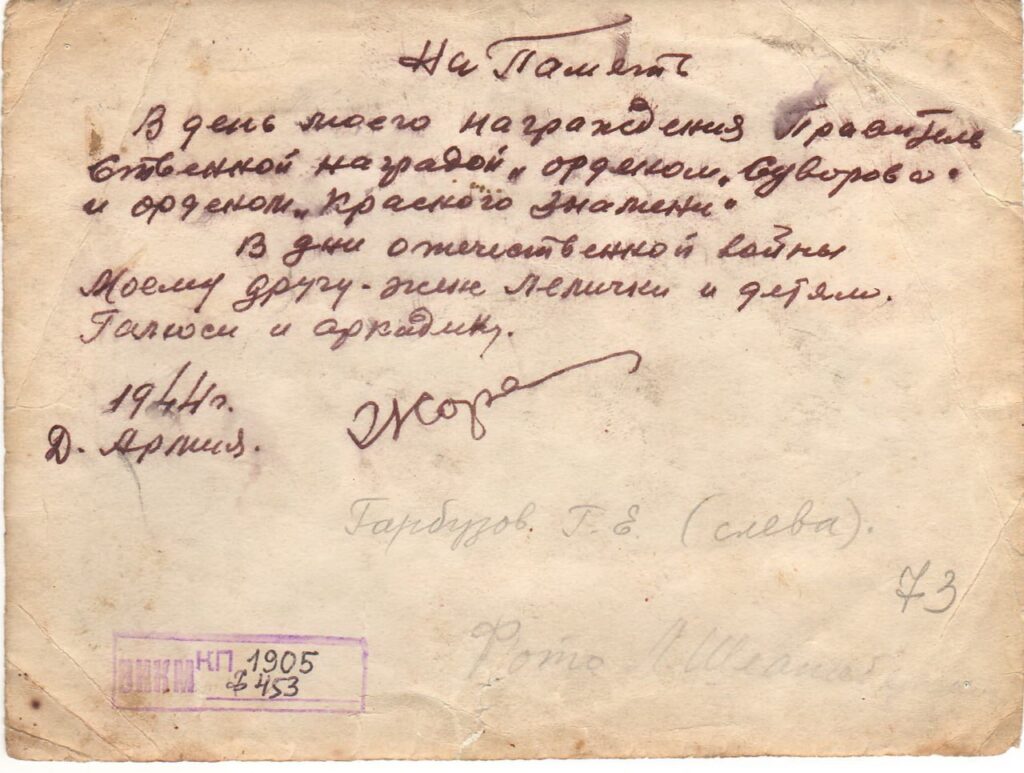 На Память
В день моего награждения Правитель
ственной наградой „орденом „Суворова"
и орденом „Красного Знамени"
В дни отечественной войны
Моему другу-жене Лелички и детям.
Галюси и аркадику.
1944 г.
Жора
Д. Армия.
Гарбузов Г. Е. (слева).
73
Фото
КП 1905
ф 453